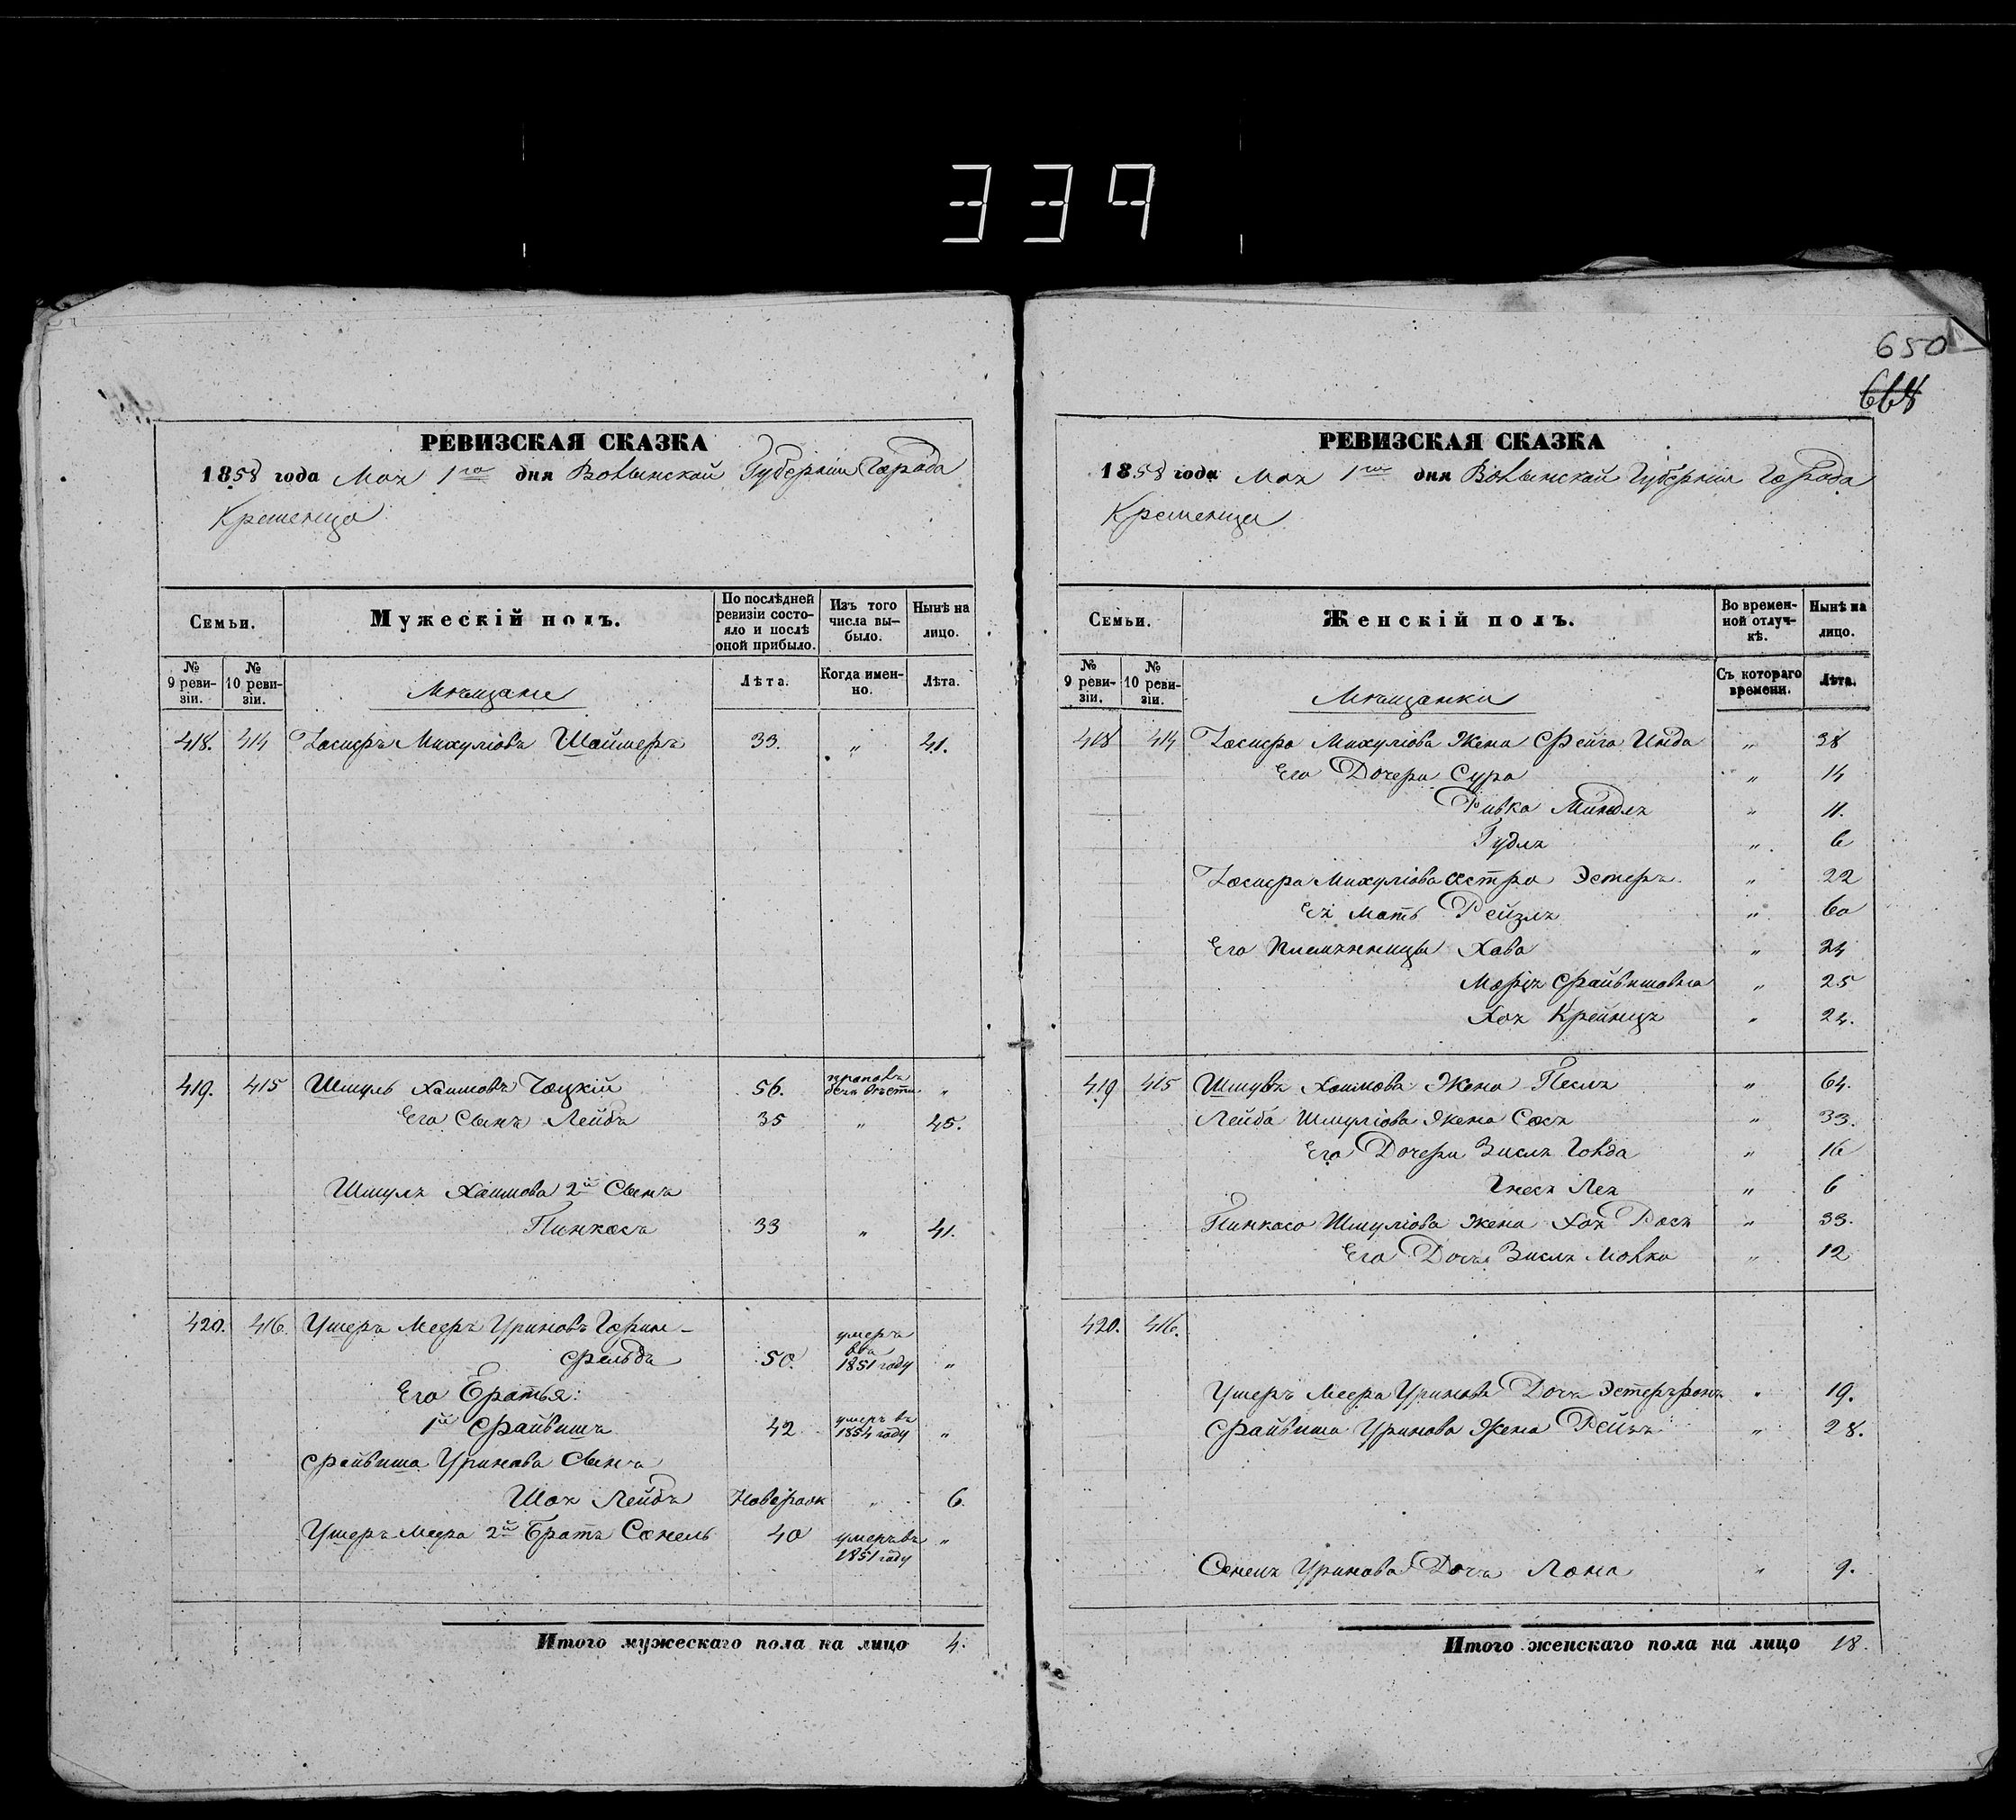 339
650
668
РЕВИЗСКАЯ СКАЗКА
1858 года Мая 1го дня Волынской Губернии Города
Кременца
Семьи.
Мужескій полъ.
По послѣдней ревизіи состо-яло и послѣ оной прибыло.
Изъ того числа вы-было.
Нынѣ на лицо.
№ 9 реви-зіи.
№ 10 реви-зіи.
Мѣщане
Лѣта.
Когда имен-но.
Лѣта.
418. 414 Іосифъ Михуліовъ 33. " 41.
419. 415 Шмуль Хаимовъ 56. безъ вѣсти "
Его Сынъ Лейба 35 " 45.
Шмуля Хаимова 2й Сынъ
Пинкасъ 33 " 41.
420. 416. Ушеръ Мееръ Уриновъ Горин-
фельдъ 50. умеръ въ 1851 году "
Его Братья:
1й Файвишъ 42 умеръ въ 1854 году "
Файвиша Уринова Сынъ
Шая Лейба Новорож " 6.
Ушеръ Меера 2й Братъ 40 умеръ въ 1851 году "
Итого мужескаго пола на лицо 4.
РЕВИЗСКАЯ СКАЗКА
1858 года Мая 1го дня Волынской Губерніи Города
Кременца
Семьи.
Женскій полъ.
Во времен-ной отлуч-кѣ.
Нынѣ на лицо.
№ 9 реви-зіи.
№ 10 реви-зіи.
Мѣщанки
Съ котораго времени.
Лѣта.
418 414 Іосифа Михуліова Жена Фейга Инда " 38
Его Дочери Сура " 14
Ривка Миндля " 11.
Гудля " 6
Іосифа Михуліова сестра Эстеръ " 22
Ея Мать Рейзля " 60
Его Племянницы Хава " 24
Файвишовна " 25
Хая Крейнця " 24.
419 415 Шмуля Хаимова Жена Песля " 64.
Лейба Шмуліова Жена Сося " 33.
Его Дочери Зисля Голда " 16
Гнеся Лея " 6
Пинкаса Шмуліова Жена Хая Рося " 33.
Его Дочь Зисля Малка " 12
420. 416.
Ушеръ Меера Уринова Дочь " 19.
Файвиша Уринова Жена " 28.
Уринова Дочь " 9.
Итого женскаго пола на лицо 18.